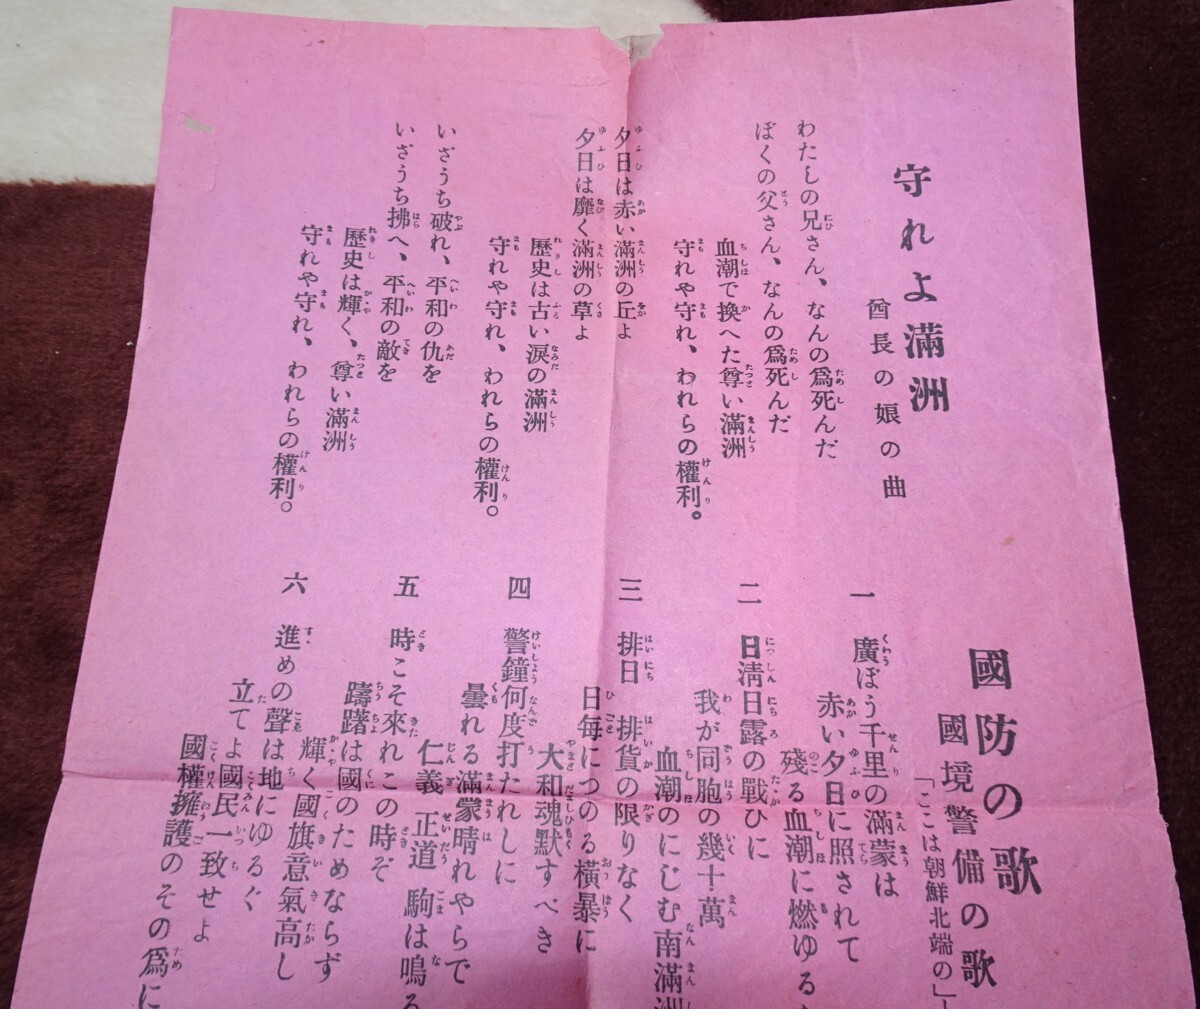 守れよ滿洲
酋長の娘の曲
わたしの兄さん、なんの爲死んだ
ぼくの父さん、なんの爲死んだ
血潮で換へた尊い滿洲
守れや守れ、われらの權利。
夕日は赤い滿洲の丘よ
夕日は靡く滿洲の草よ
歷史は古い淚の滿洲
守れや守れ、われらの權利。
いざうち破れ、平和の仇を
いざうち拂へ、平和の敵を
歷史は輝く、尊い滿洲
守れや守れ、われらの權利。
國防の歌
國境警備の歌
「ここは朝鮮北端の」
一 廣ぼう千里の滿蒙は
赤い夕日に照されて
殘る血潮に燃ゆる
二 日淸日露の戰ひに
我が同胞の幾十萬
血潮のにじむ南滿洲
三 排日 排貨の限りなく
日每につのる橫暴に
大和魂默すべき
四 警鐘何度打たれしに
曇れる滿蒙晴れやらで
仁義 正道 駒は鳴る
五 時こそ來れこの時ぞ
躊躇は國のためならず
輝く國旗意氣高し
六 進めの聲は地にゆるぐ
立てよ國民一致せよ
國權擁護のその爲に